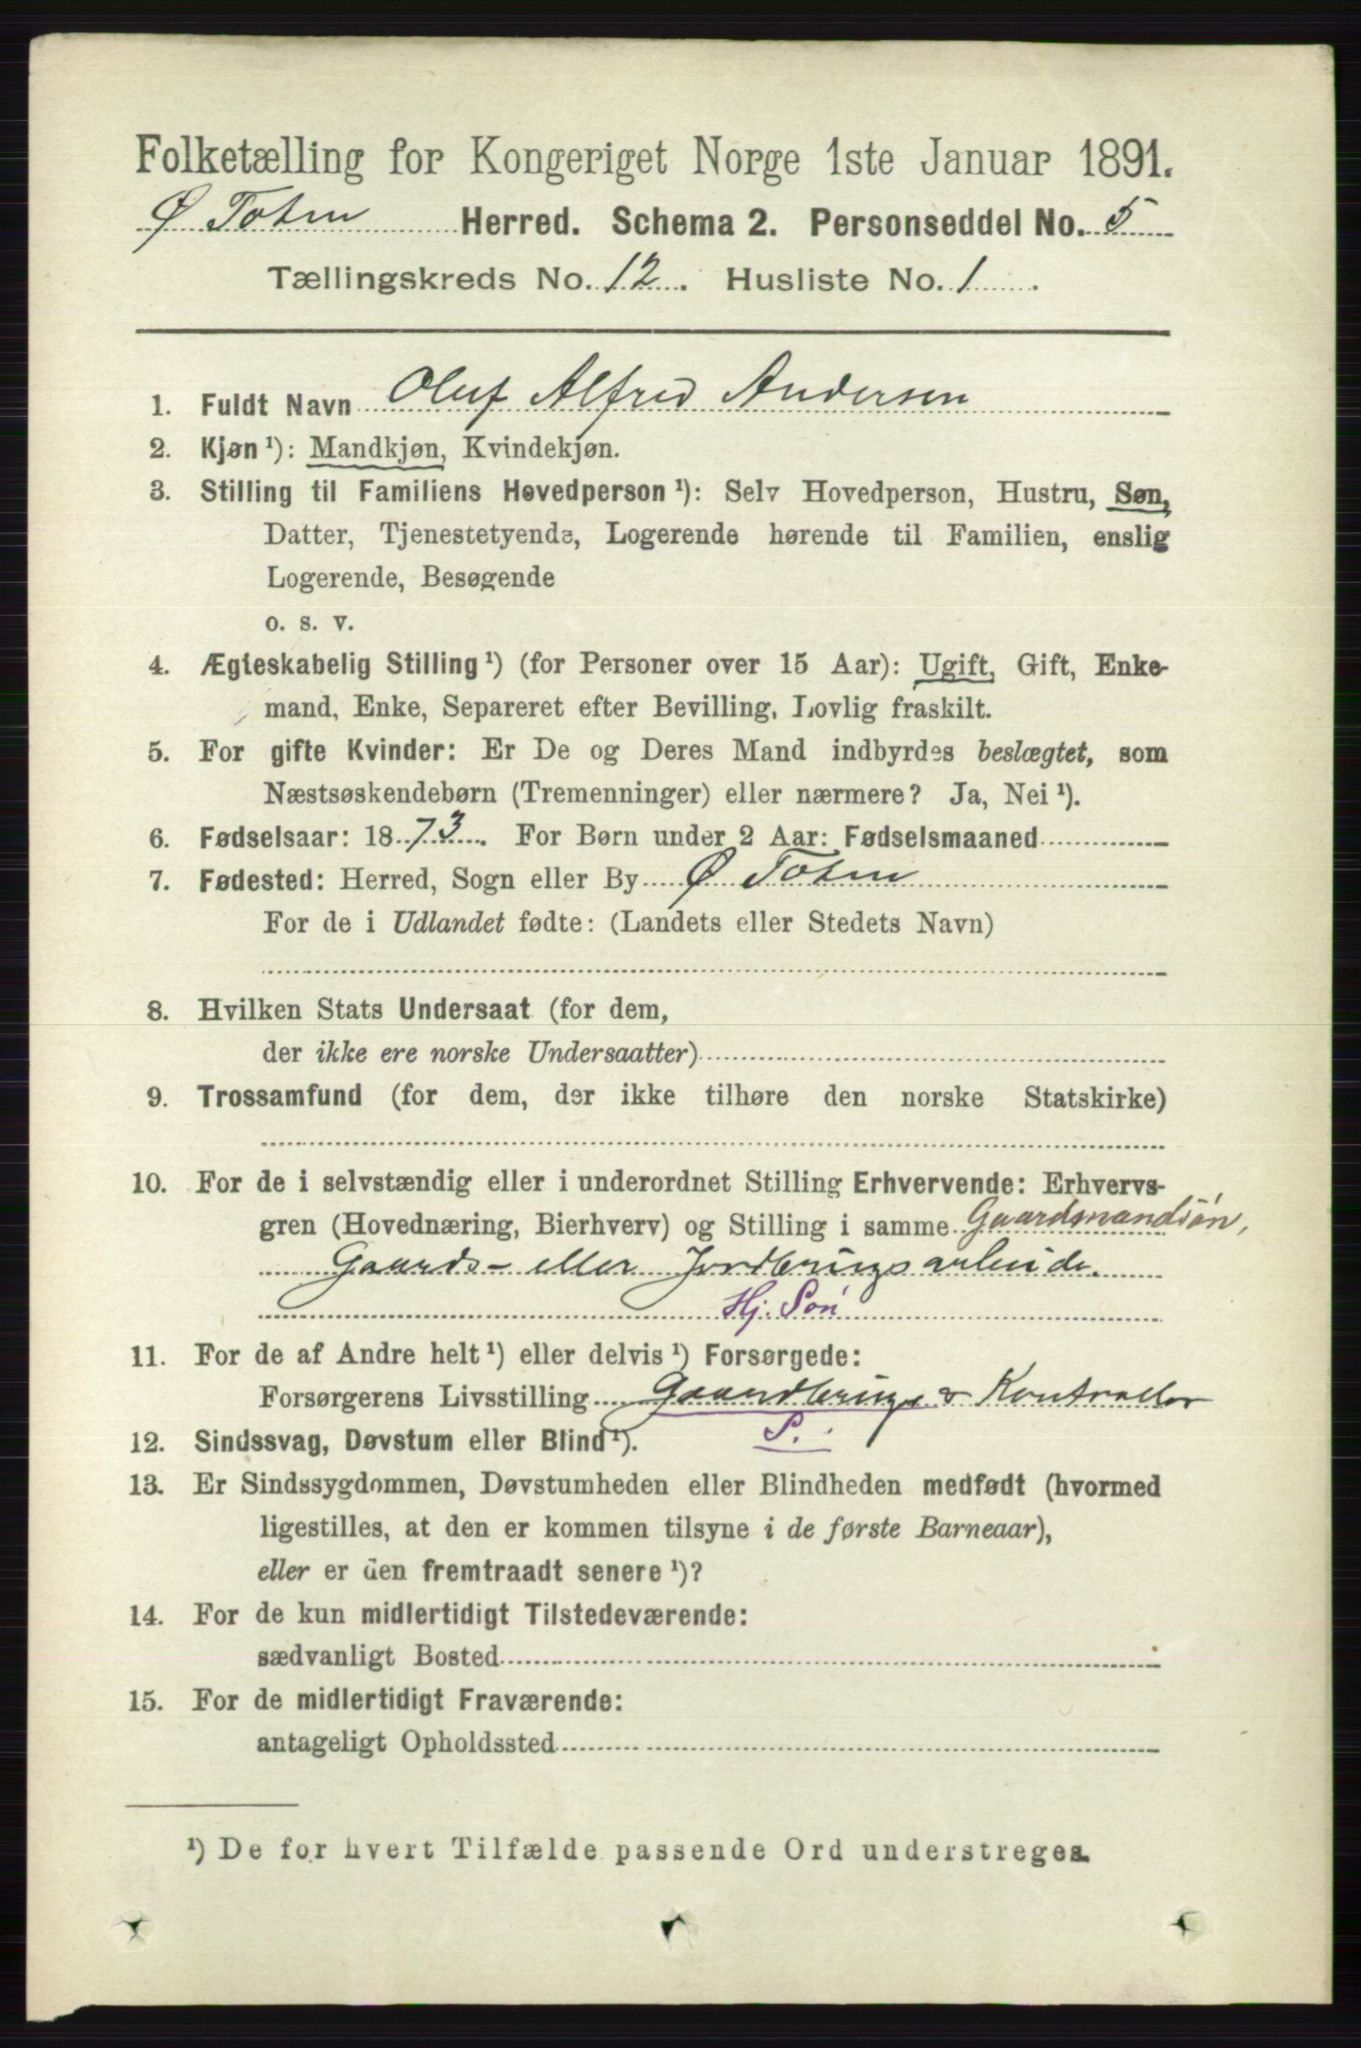 Folketælling for Kongeriget Norge 1ste Januar 1891.
Ø Toten Herred. Schema 2. Personseddel No. 5
Tællingskreds No. 12. Husliste No. 1.
1. Fuldt Navn Oluf Alfred Andersen
2. Kjøn ¹): Mandkjøn, Kvindekjøn.
3. Stilling til Familiens Hovedperson ¹): Selv Hovedperson, Hustru, Søn,
Datter, Tjenestetyende, Logerende hørende til Familien, enslig
Logerende, Besøgende
o. s. v.
4. Ægteskabelig Stilling ¹) (for Personer over 15 Aar): Ugift, Gift, Enke-
mand, Enke, Separeret efter Bevilling, Lovlig fraskilt.
5. For gifte Kvinder: Er De og Deres Mand indbyrdes beslægtet, som
Næstsøskendebørn (Tremenninger) eller nærmere? Ja, Nei ¹).
6. Fødselsaar: 1873. For Børn under 2 Aar: Fødselsmaaned
7. Fødested: Herred, Sogn eller By Ø Toten
For de i Udlandet fødte: (Landets eller Stedets Navn)
8. Hvilken Stats Undersaat (for dem,
der ikke ere norske Undersaatter)
9. Trossamfund (for dem, der ikke tilhøre den norske Statskirke)
10. For de i selvstændig eller i underordnet Stilling Erhvervende: Erhvervs-
gren (Hovednæring, Bierhverv) og Stilling i samme Gaardmandsøn,
Gaards- eller Jordbrugsarbeide.
Hj. Søn
11. For de af Andre helt ¹) eller delvis ¹) Forsørgede:
Forsørgerens Livsstilling Gaardbruger & Kontrollør
S.
12. Sindssvag, Døvstum eller Blind ¹).
13. Er Sindssygdommen, Døvstumheden eller Blindheden medfødt (hvormed
ligestilles, at den er kommen tilsyne i de første Barneaar),
eller er den fremtraadt senere ¹)?
14. For de kun midlertidigt Tilstedeværende:
sædvanligt Bosted
15. For de midlertidigt Fraværende:
antageligt Opholdssted
¹) De for hvert Tilfælde passende Ord understreges.